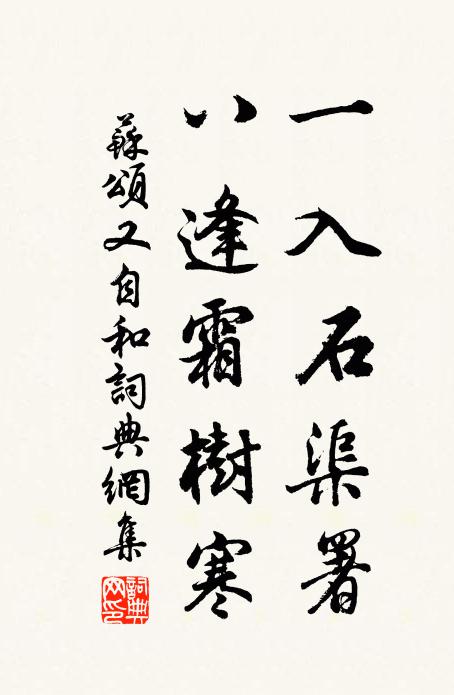 一入石渠署
八逢霜樹寒
蘇頌又自和詞典網集
詞典网印